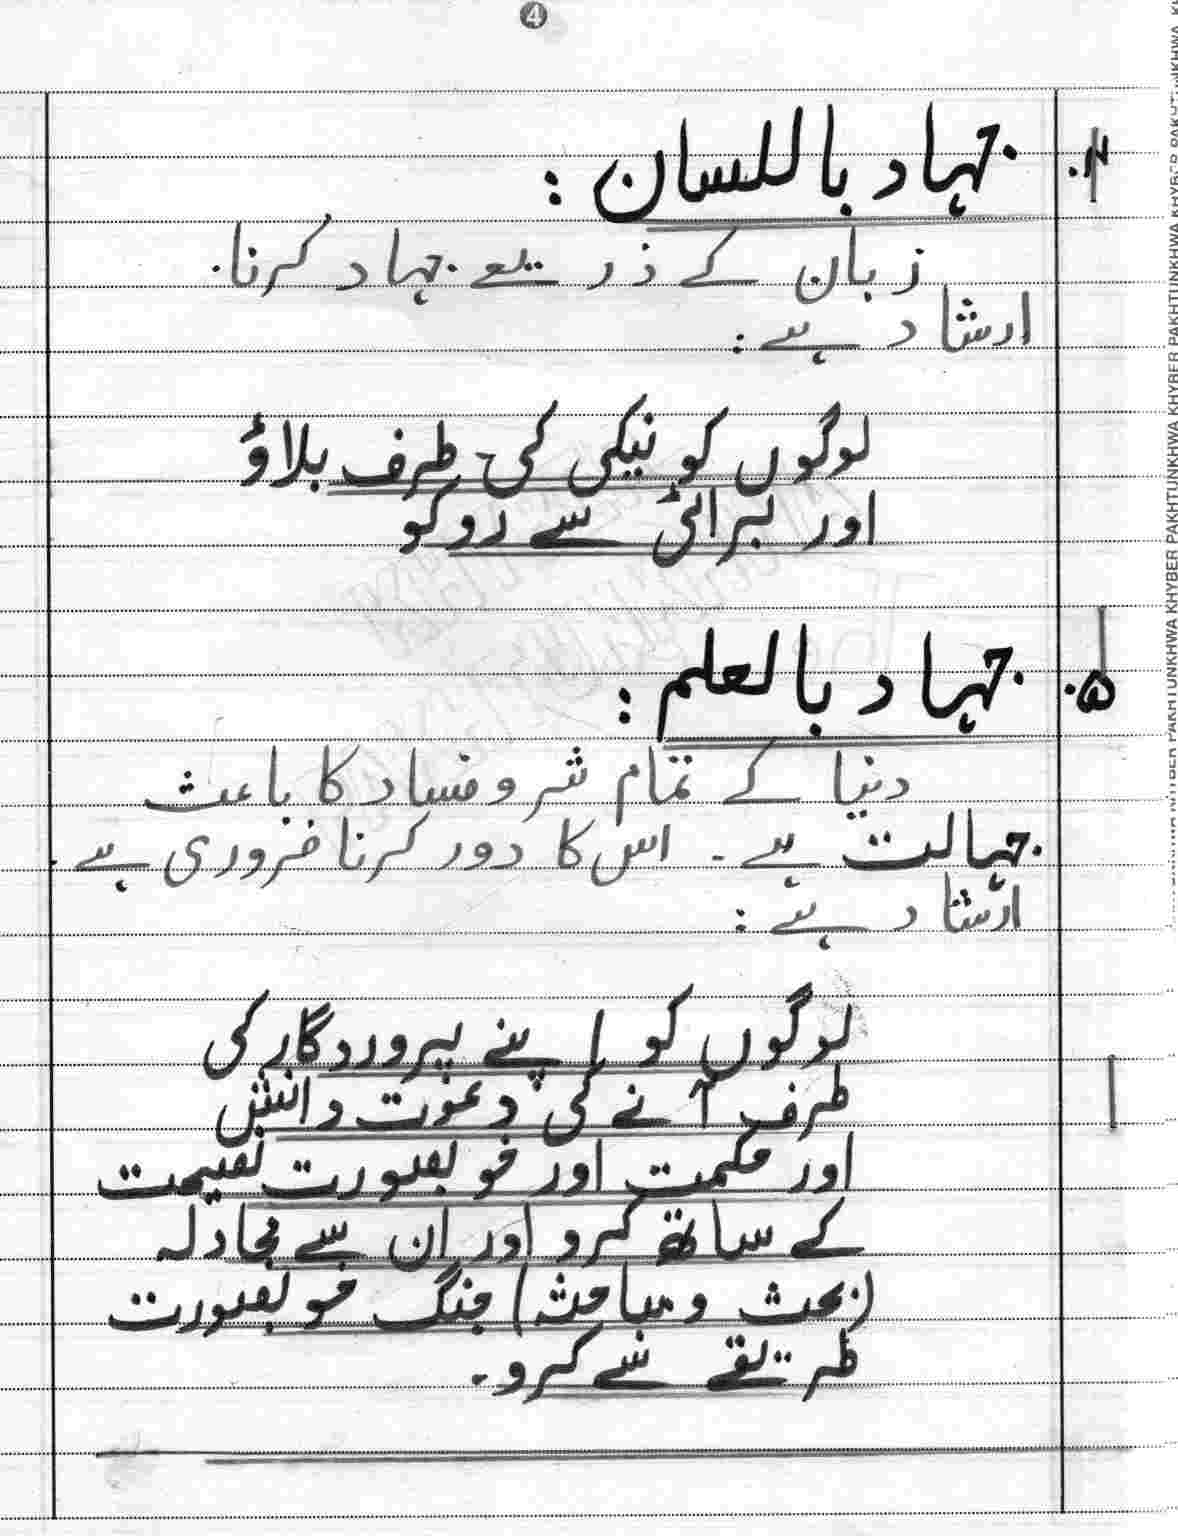 4
۴. جہاد باللسان :
زبان کے ذریعے جہاد کرنا۔
ارشاد ہے :
لوگوں کو نیکی کی طرف بلاؤ
اور برائی سے روکو
۵. جہاد بالعلم :
دنیا کے تمام شر و فساد کا باعث
جہالت ہے ۔ اس کا دور کرنا ضروری ہے ۔
ارشاد ہے :
لوگوں کو اپنے پروردگار کی
طرف آنے کی دعوت دانش
اور حکمت اور خوبصورت نصیحت
کے ساتھ کرو اور ان سے مجادلہ
(بحث و مباحثہ) جنگ خوبصورت
طریقے سے کرو ۔
KHYBER PAKHTUNKHWA KHYBER PAKHTUNKHWA KHYBER PAKHTUNKHWA